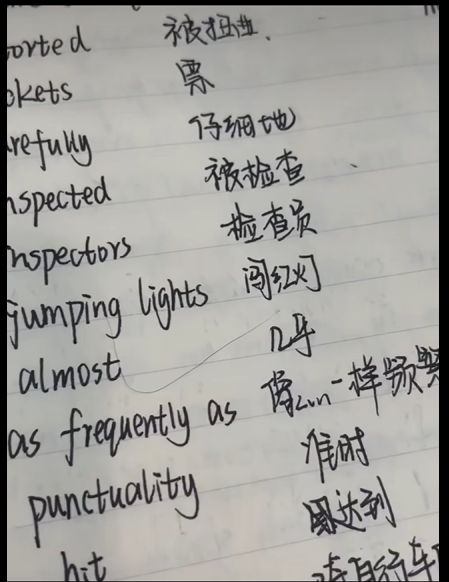 orted 被扭曲.
ckets 票
refully 仔细地
nspected 被检查
nspectors 检查员
jumping lights 闯红灯
almost 几乎
as frequently as 像 一样频繁
punctuality 准时
hit 达到
自行车